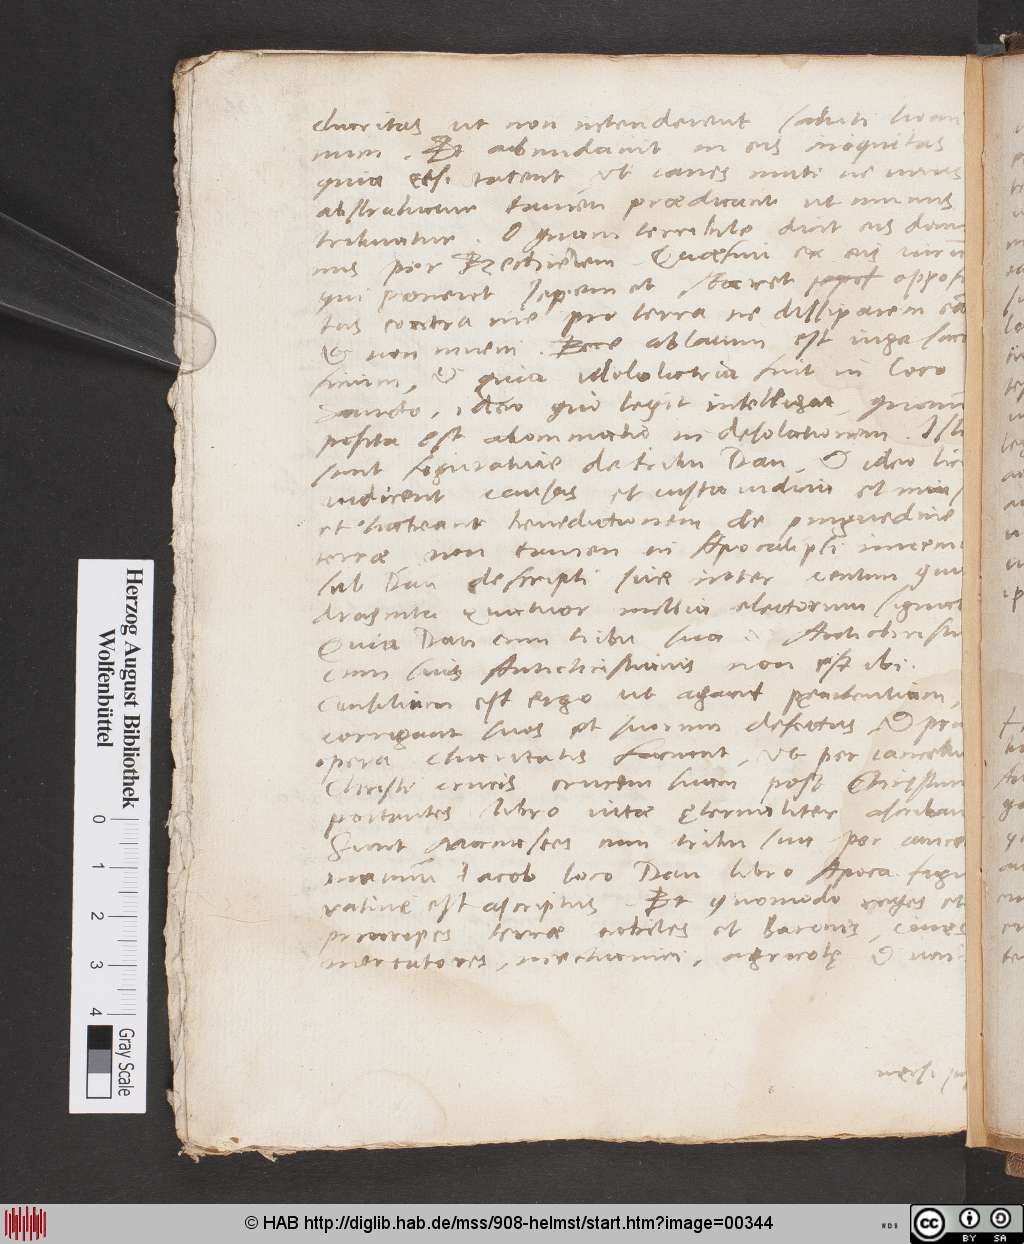 charitas ut non intenderent saluti homi
num. Et abundavit in eis iniquitas
quia etsi tacent, ut canes muti ne
abstrahatur tamen prædicant ut munus
tribuatur. O quam terribile dicit eis domi
nus per Ezechielem. Quæsivi ex eis virum
qui poneret sepem et staret opposi
tus contra me pro terra ne dissiparem eam
& non inveni. Ecce ablatum est iuge sacri
ficium, & quia idololatria fuit in loco
sancto, ideo qui legit intelligat, quoniam
posita est abominatio in desolationem. Isti
sunt figurative de tribu Dan, & ideo lic
iudicent causas et iusta iudicia
et habeant benedictionem de pinguedine
terræ non tamen in Apocalipsi inveni
sub Dan descripti sunt inter centum qua
draginta quatuor millia electorum signat
Quia Dan cum tribu sua & Antichristu
cum suis Antichristianis non est ibi.
Consilium est ergo ut agant pęnitentiam,
corrigant suos et suorum defectus, &
opera charitatis faciant, ut per cancell
Christi crucis crucem suam post Christum
portantes libro vitæ ęternaliter ascriban
Sicut Manasses cum tribu sua per
manuum Iacob loco Dan libro Apoca. figu
rative est ascriptus. Et quomodo reges et
principes terræ nobiles et Barones, cives
mercatores, mechanici, agricolę & uni
versi
Herzog August Bibliothek
Wolfenbüttel
0 1 2 3 4
Gray Scale
© HAB http://diglib.hab.de/mss/908-helmst/start.htm?image=00344
WDB
cc BY SA